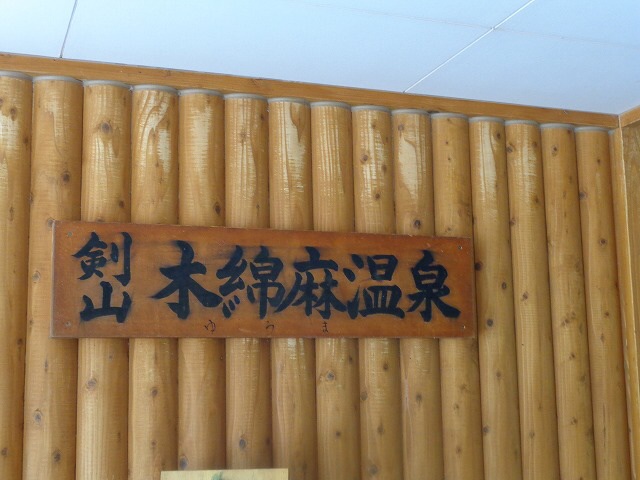 剣山
木綿麻温泉
ゆうま